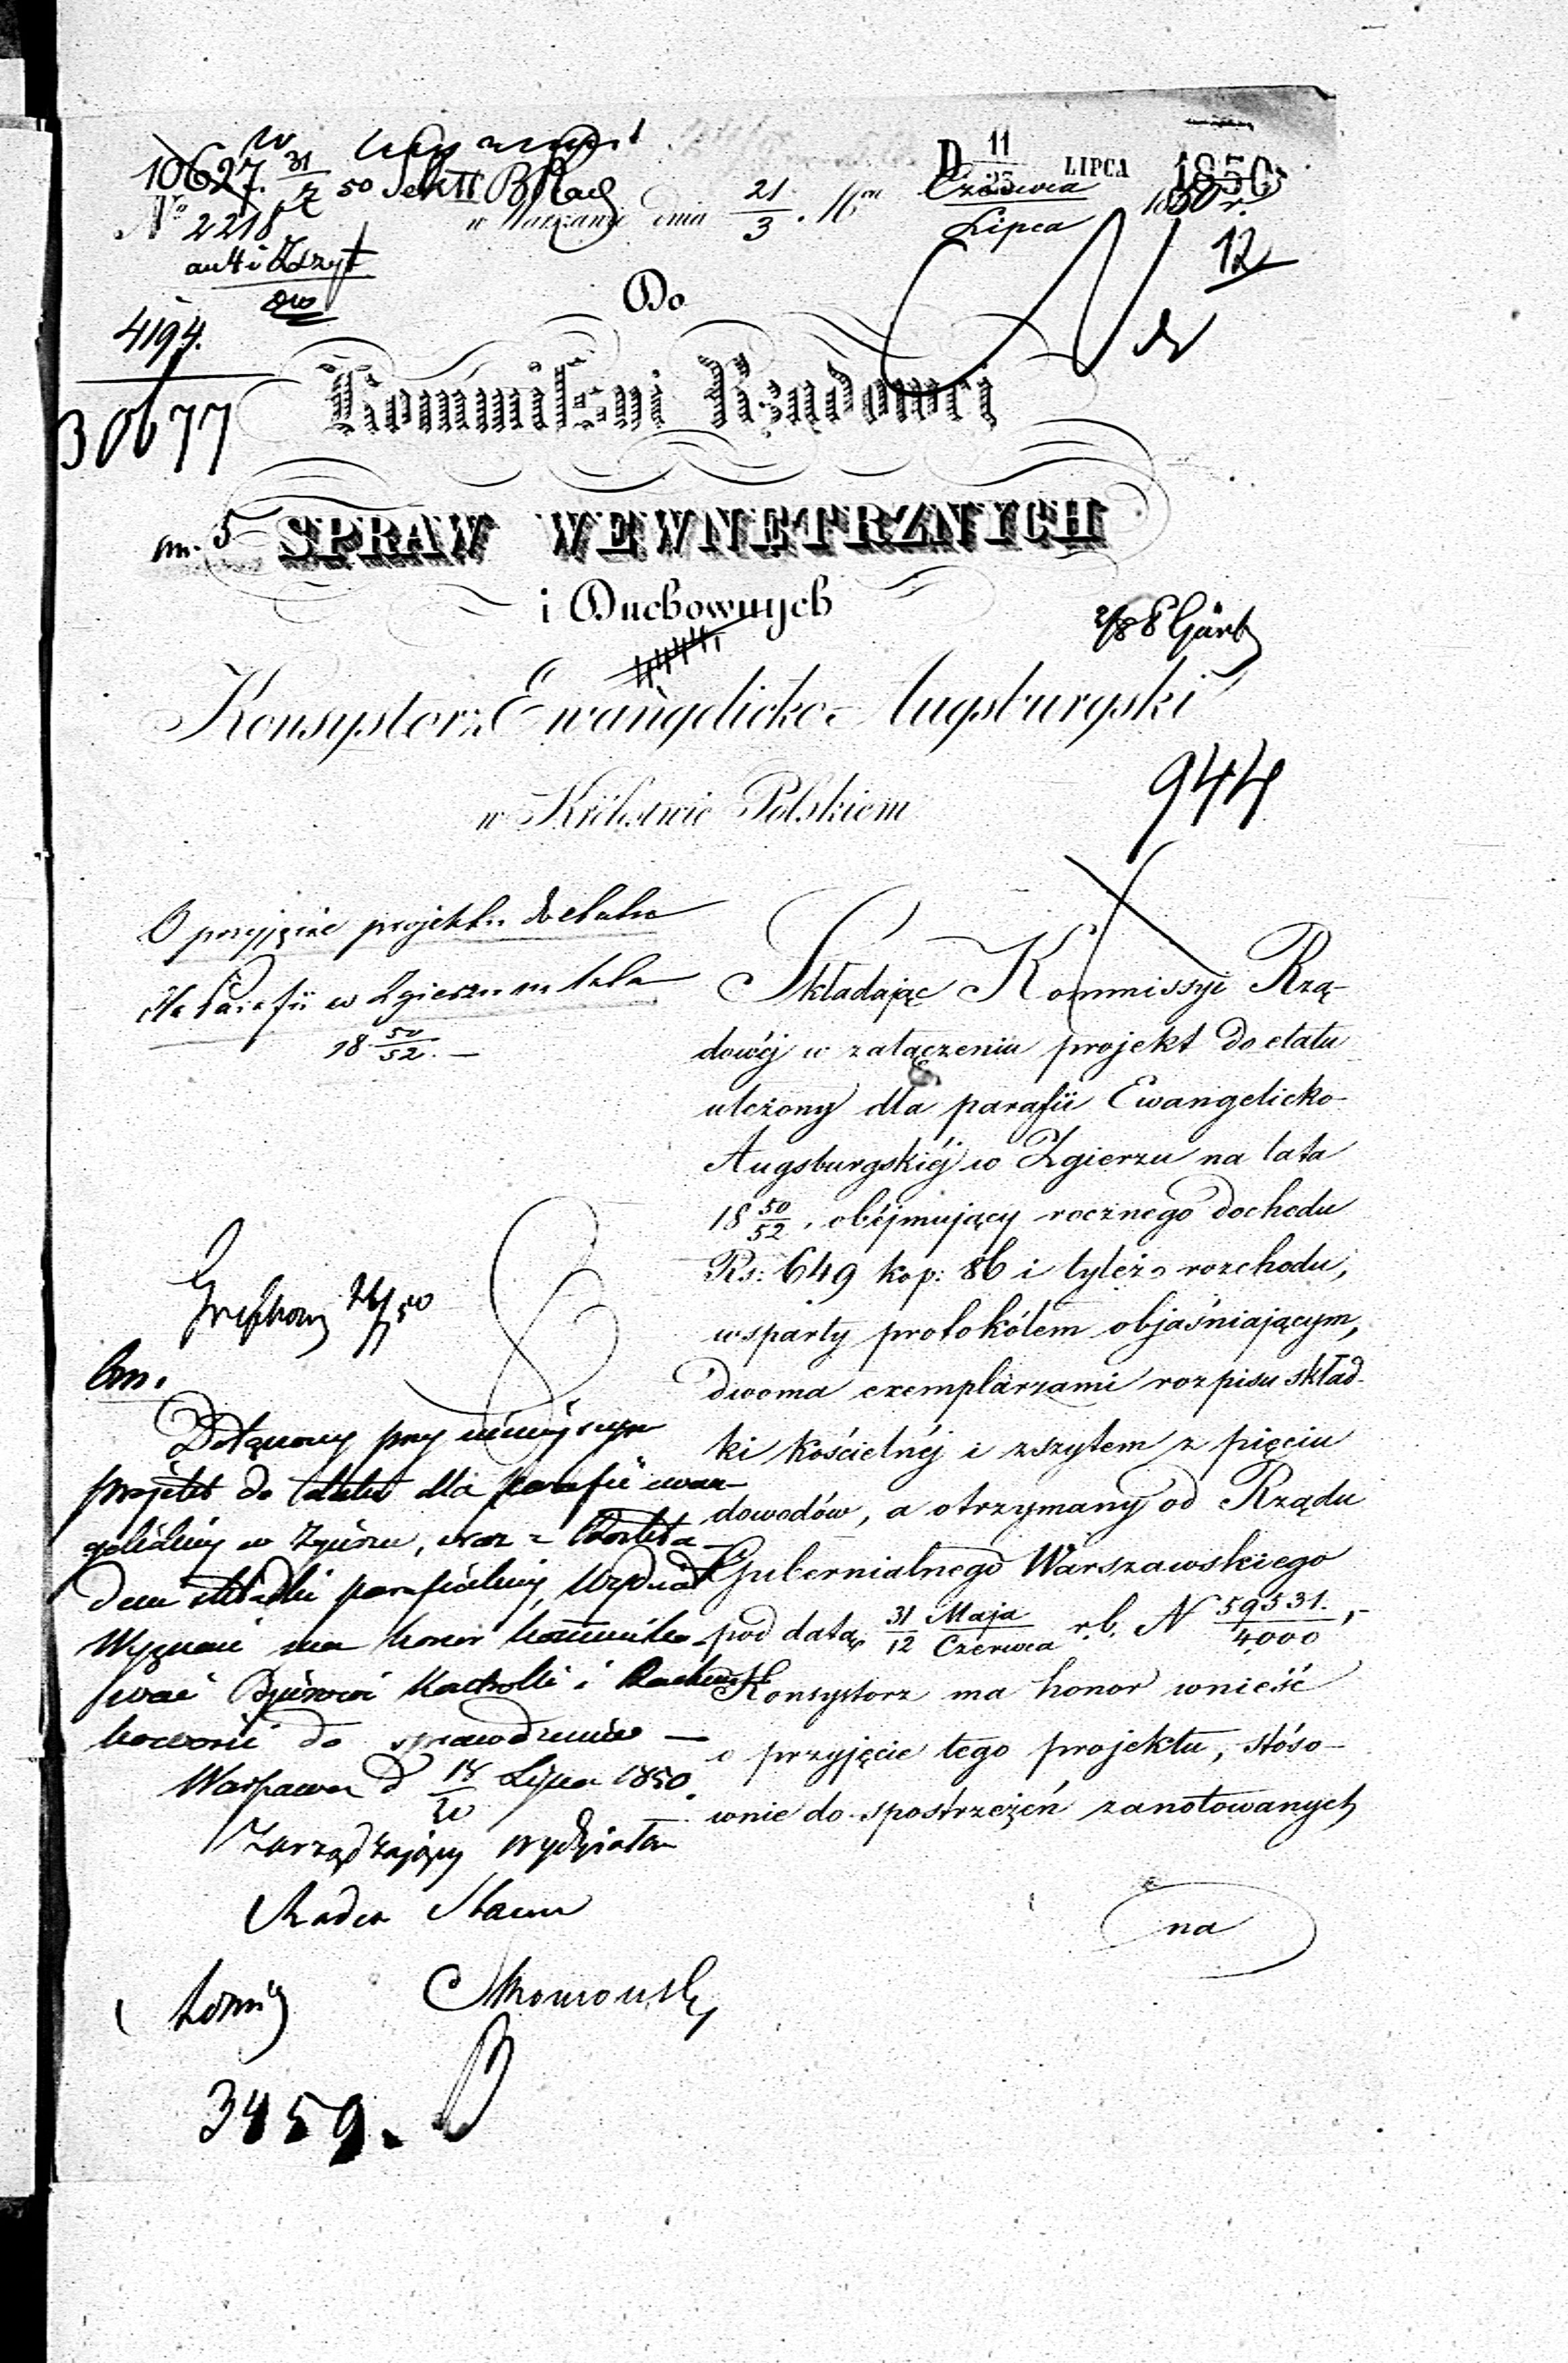 10627. 31 50 Sek II B Rad
D 11 LIPCA 1850
№ 2218
w Warszawie dnia 21/3 Czerwca/Lipca 1850 r.
12
4194.
30677
Do
Kommissyi Rządowej
SPRAW WEWNĘTRZNYCH
i Duchownych
5
Konsystorz Ewangelicko-Augsburgski
w Królestwie Polskiem
944
O przyjęcie projektu do etatu
dla Parafii w Zgierzu na lata
18 50/52. —
Składając Kommissyi Rzą-
dowéj w załączeniu projekt do etatu
ułożony dla parafii Ewangelicko-
Augsburgskiéj w Zgierzu na lata
18 50/52, obéjmujący rocznego dochodu
Rs: 649 kop: 86 i tyleż rozchodu,
wsparty protokółem objaśniającym,
dwoma exemplarzami rozpisu skład-
ki kościelnéj i zszytem z pięciu
dowodów, a otrzymany od Rządu
Gubernialnego Warszawskiego
pod datą 31/12 Maja/Czerwca r.b. N 59531./4000,-
Konsystorz ma honor wnieść
o przyjęcie tego projektu, stóso-
wnie do spostrzeżeń zanotowanych
na
Dołączony przy niniejszym
projekt do etatu dla parafii ewan-
gelickiéj w Zgierzu, wraz z rozkła-
dem składki parafialnéj, Wydział
Wyznań ma honor kommuniko-
wać Biurowi Kontrolli i Rachun-
kowości do sprawdzenia —
Warszawa d 18/30 Lipca 1850.
Zarządzający Wydziałem
Radca Stanu
3459.